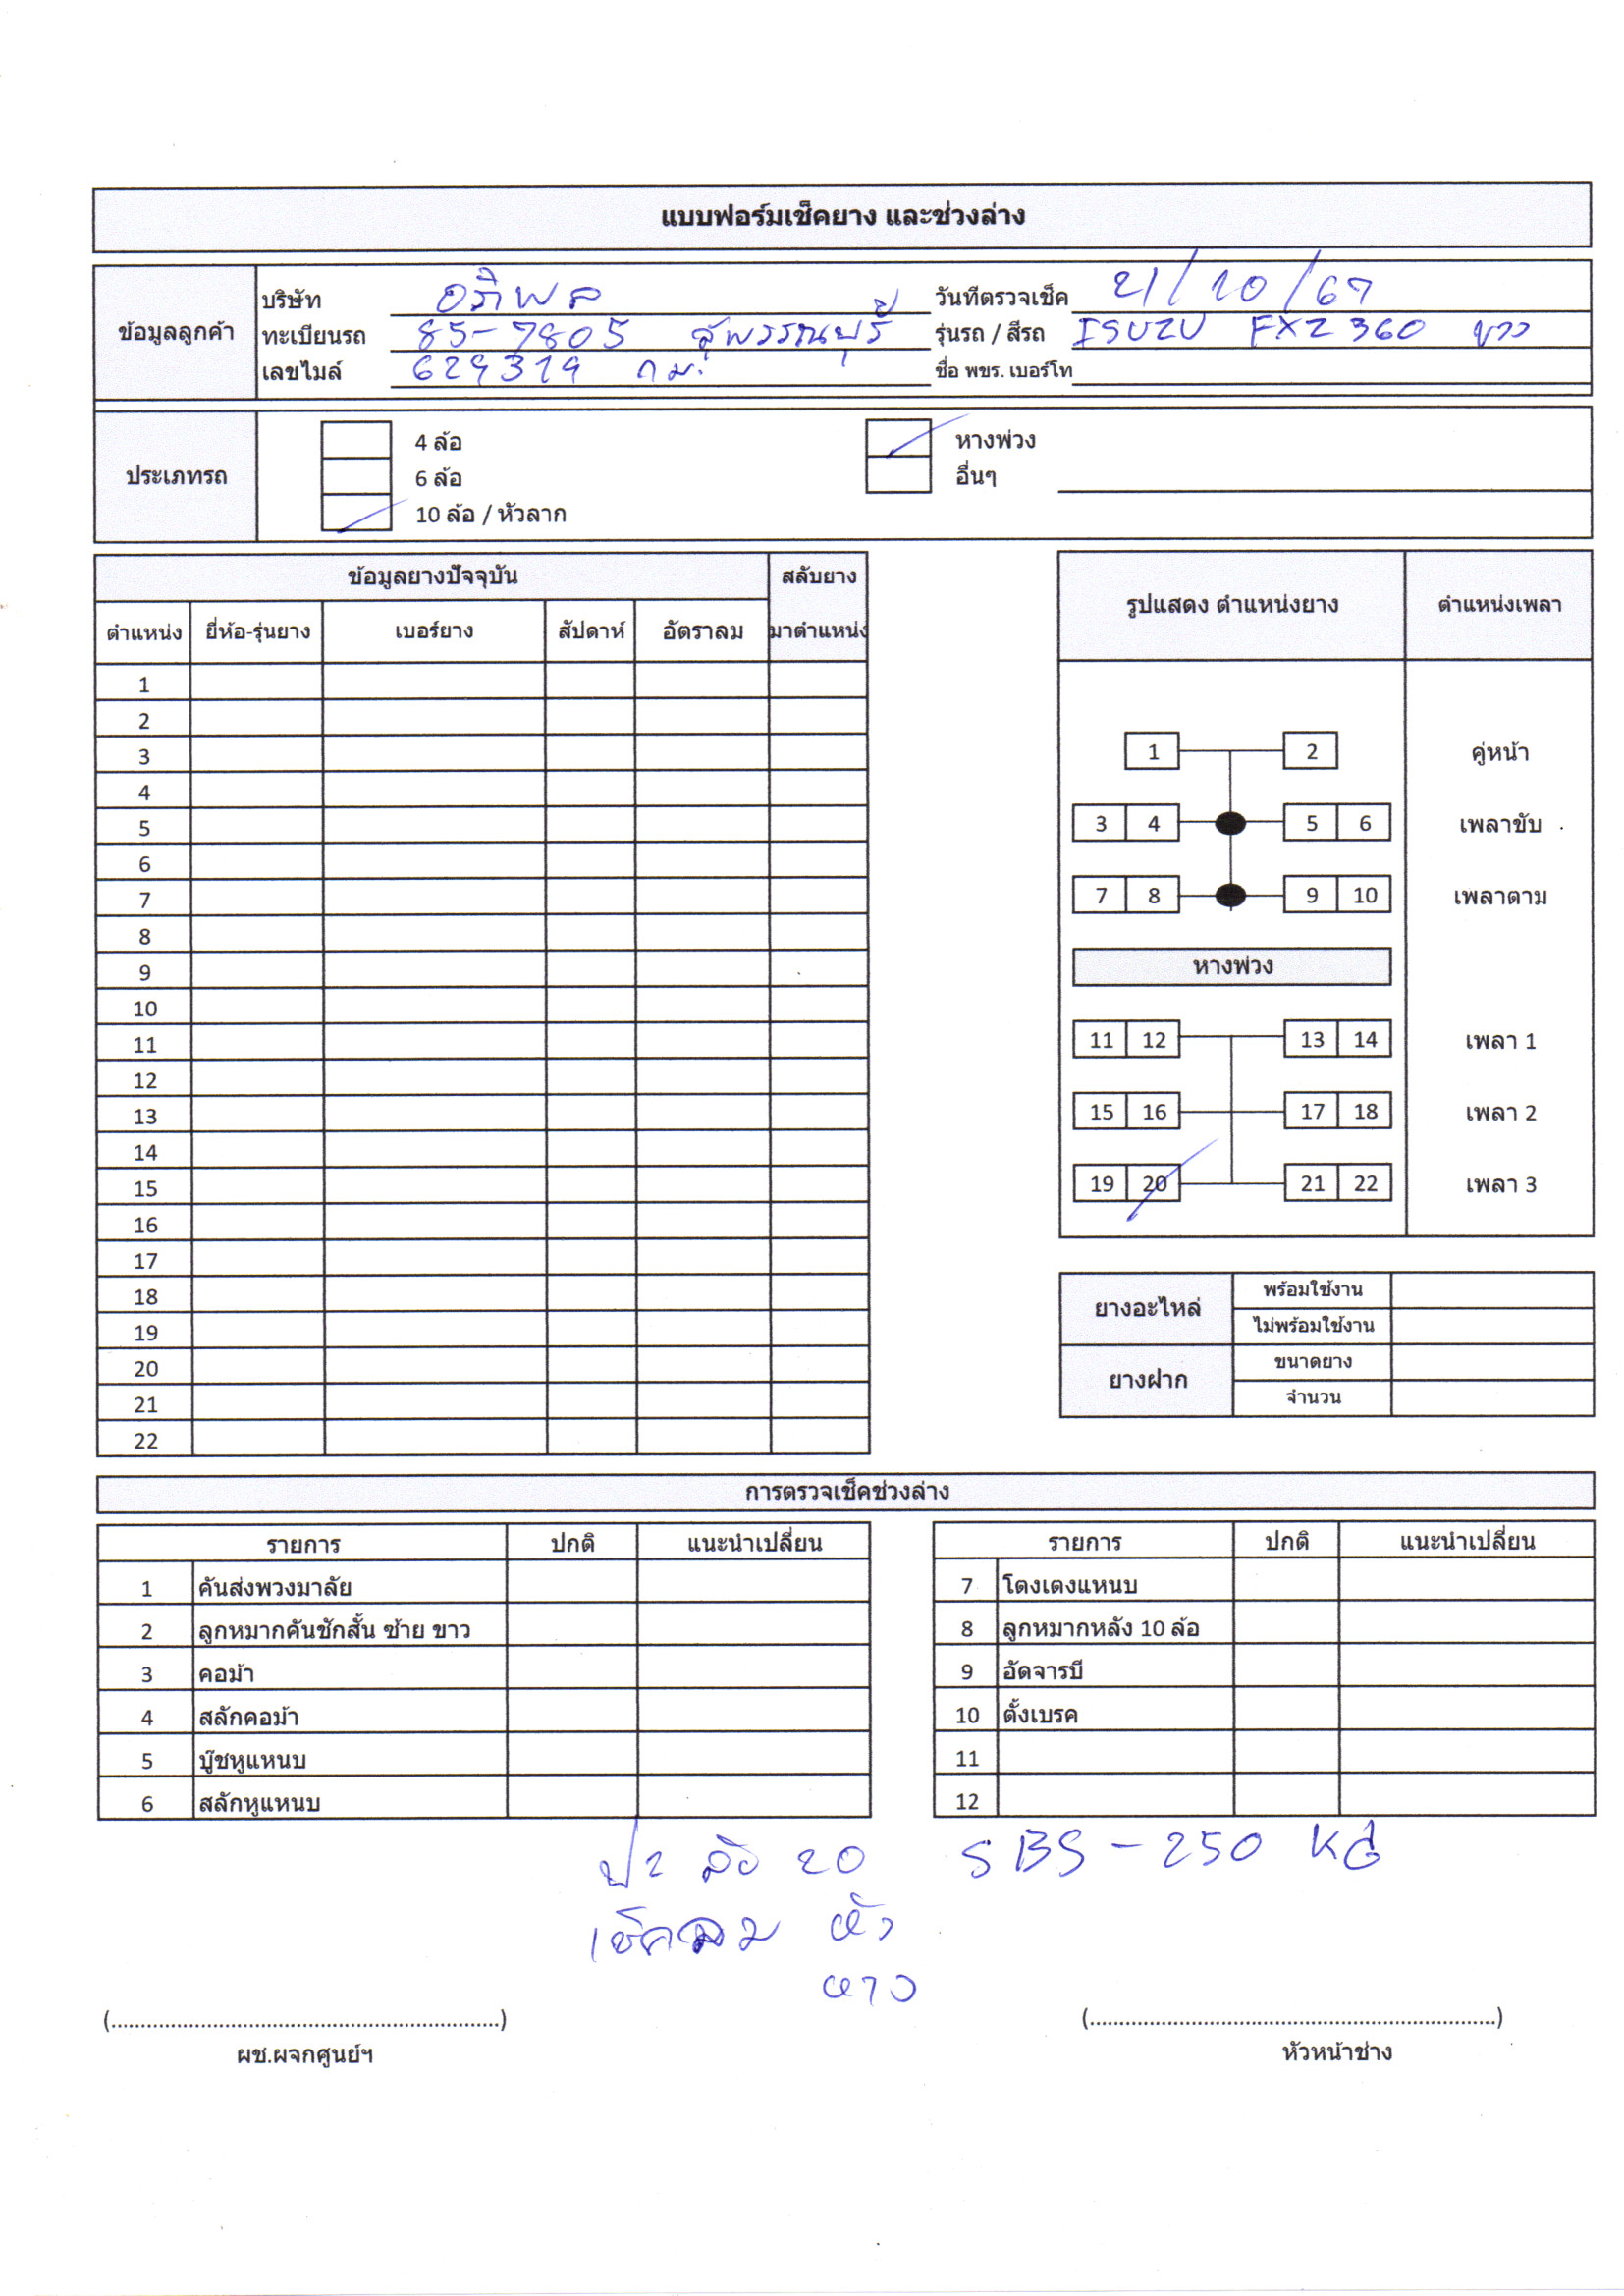 แบบฟอร์มเช็คยาง และช่วงล่าง
ข้อมูลลูกค้า
บริษัท อภิพล วันที่ตรวจเช็ค 21/10/67
ทะเบียนรถ 85-7805 สุพรรณบุรี รุ่นรถ / สีรถ ISUZU FXZ 360 ขาว
เลขไมล์ 629319 กม. ชื่อ พขร. เบอร์โท
ประเภทรถ
4 ล้อ หางพ่วง
6 ล้อ อื่นๆ
10 ล้อ / หัวลาก
ข้อมูลยางปัจจุบัน สลับยาง
ตำแหน่ง ยี่ห้อ-รุ่นยาง เบอร์ยาง สัปดาห์ อัตราลม มาตำแหน่ง
1
2
3
4
5
6
7
8
9
10
11
12
13
14
15
16
17
18
19
20
21
22
รูปแสดง ตำแหน่งยาง ตำแหน่งเพลา
1 2 คู่หน้า
3 4 5 6 เพลาขับ
7 8 9 10 เพลาตาม
หางพ่วง
11 12 13 14 เพลา 1
15 16 17 18 เพลา 2
19 20 21 22 เพลา 3
ยางอะไหล่ พร้อมใช้งาน
ไม่พร้อมใช้งาน
ยางฝาก ขนาดยาง
จำนวน
การตรวจเช็คช่วงล่าง
รายการ ปกติ แนะนำเปลี่ยน
1 คันส่งพวงมาลัย
2 ลูกหมากคันชักสั้น ซ้าย ขาว
3 คอม้า
4 สลักคอม้า
5 บู๊ชหูแหนบ
6 สลักหูแหนบ
รายการ ปกติ แนะนำเปลี่ยน
7 โตงเตงแหนบ
8 ลูกหมากหลัง 10 ล้อ
9 อัดจารบี
10 ตั้งเบรค
11
12
20 SBS - 250 KG
เช็คลม หัว
หาง
(..................................................................) (..................................................................)
ผช.ผจกศูนย์ฯ หัวหน้าช่าง